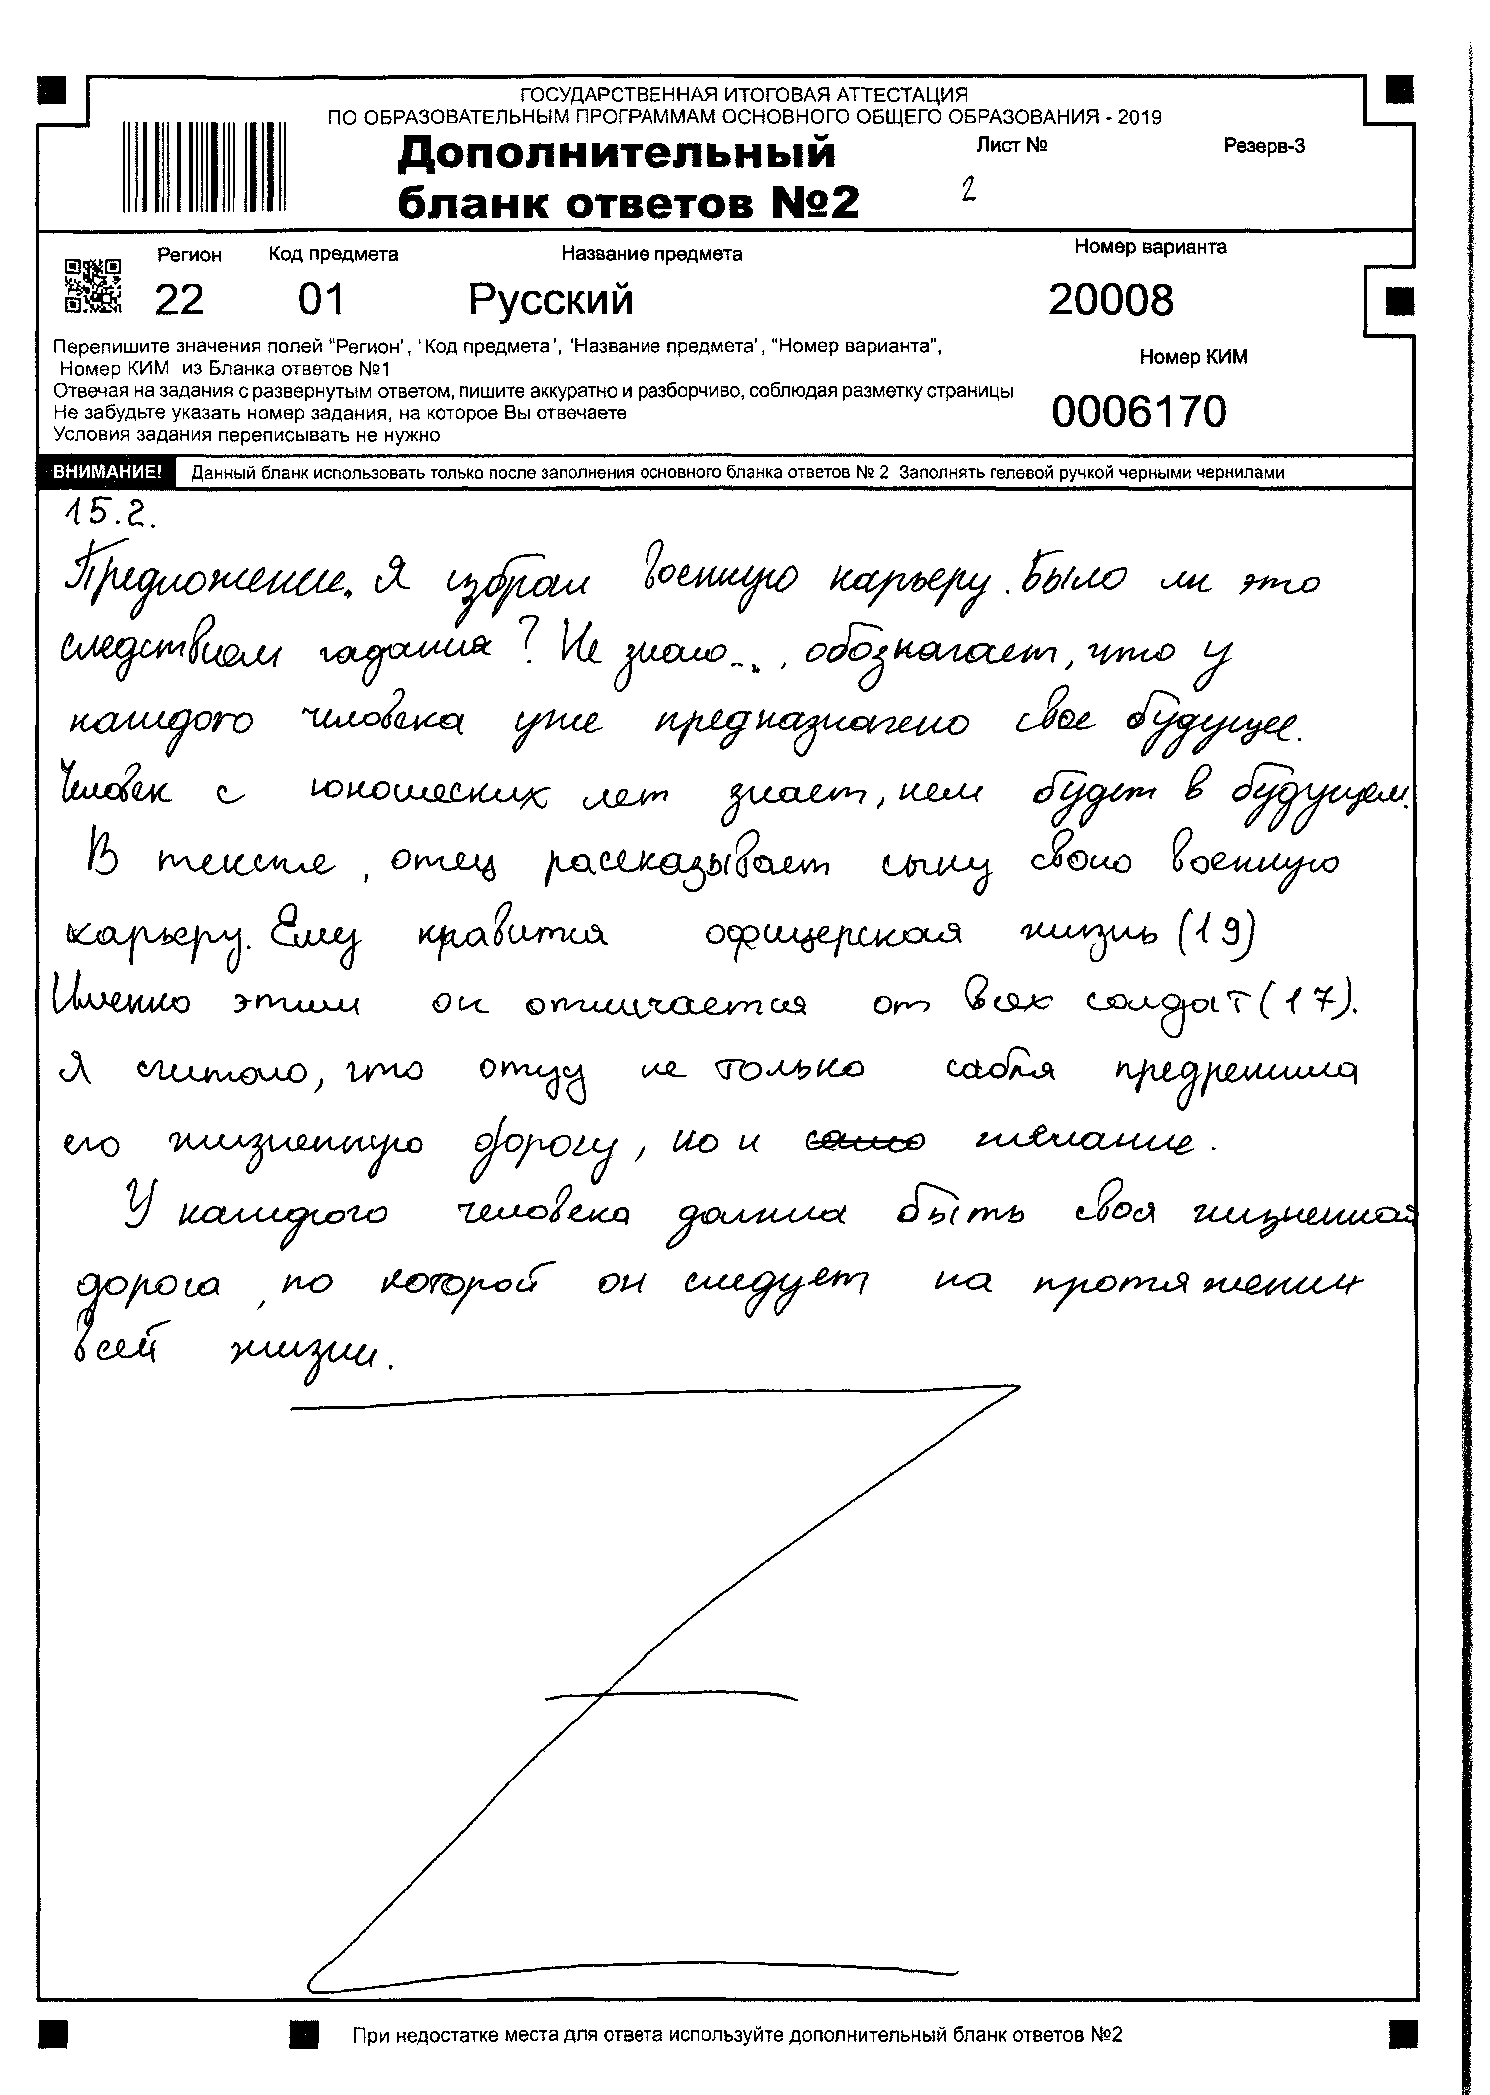 ГОСУДАРСТВЕННАЯ ИТОГОВАЯ АТТЕСТАЦИЯ
ПО ОБРАЗОВАТЕЛЬНЫМ ПРОГРАММАМ ОСНОВНОГО ОБЩЕГО ОБРАЗОВАНИЯ - 2019
Дополнительный
бланк ответов №2
Лист №
2
Резерв-3
Регион
22
Код предмета
01
Название предмета
Русский
Номер варианта
20008
Перепишите значения полей "Регион', 'Код предмета', 'Название предмета', "Номер варианта",
Номер КИМ из Бланка ответов №1
Отвечая на задания с развернутым ответом, пишите аккуратно и разборчиво, соблюдая разметку страницы
Не забудьте указать номер задания, на которое Вы отвечаете
Условия задания переписывать не нужно
Номер КИМ
0006170
ВНИМАНИЕ! Данный бланк использовать только после заполнения основного бланка ответов № 2 Заполнять гелевой ручкой черными чернилами
15.2.
Предложение. Я избрал военную карьеру. Было ли это
следствием гадания? Не знаю..., обозначает, что у
каждого человека уже предназначено свое будущее.
Человек с юношеских лет знает, кем будет в будущем.
В тексте, отец рассказывает сыну свою военную
карьеру. Ему нравится офицерская жизнь (19)
Именно этим он отличается от всех солдат (17).
Я считаю, что отцу не только сабля предрешила
его жизненную дорогу, но и само желание.
У каждого человека должна быть своя жизненная
дорога, по которой он следует на протяжении
всей жизни.
При недостатке места для ответа используйте дополнительный бланк ответов №2